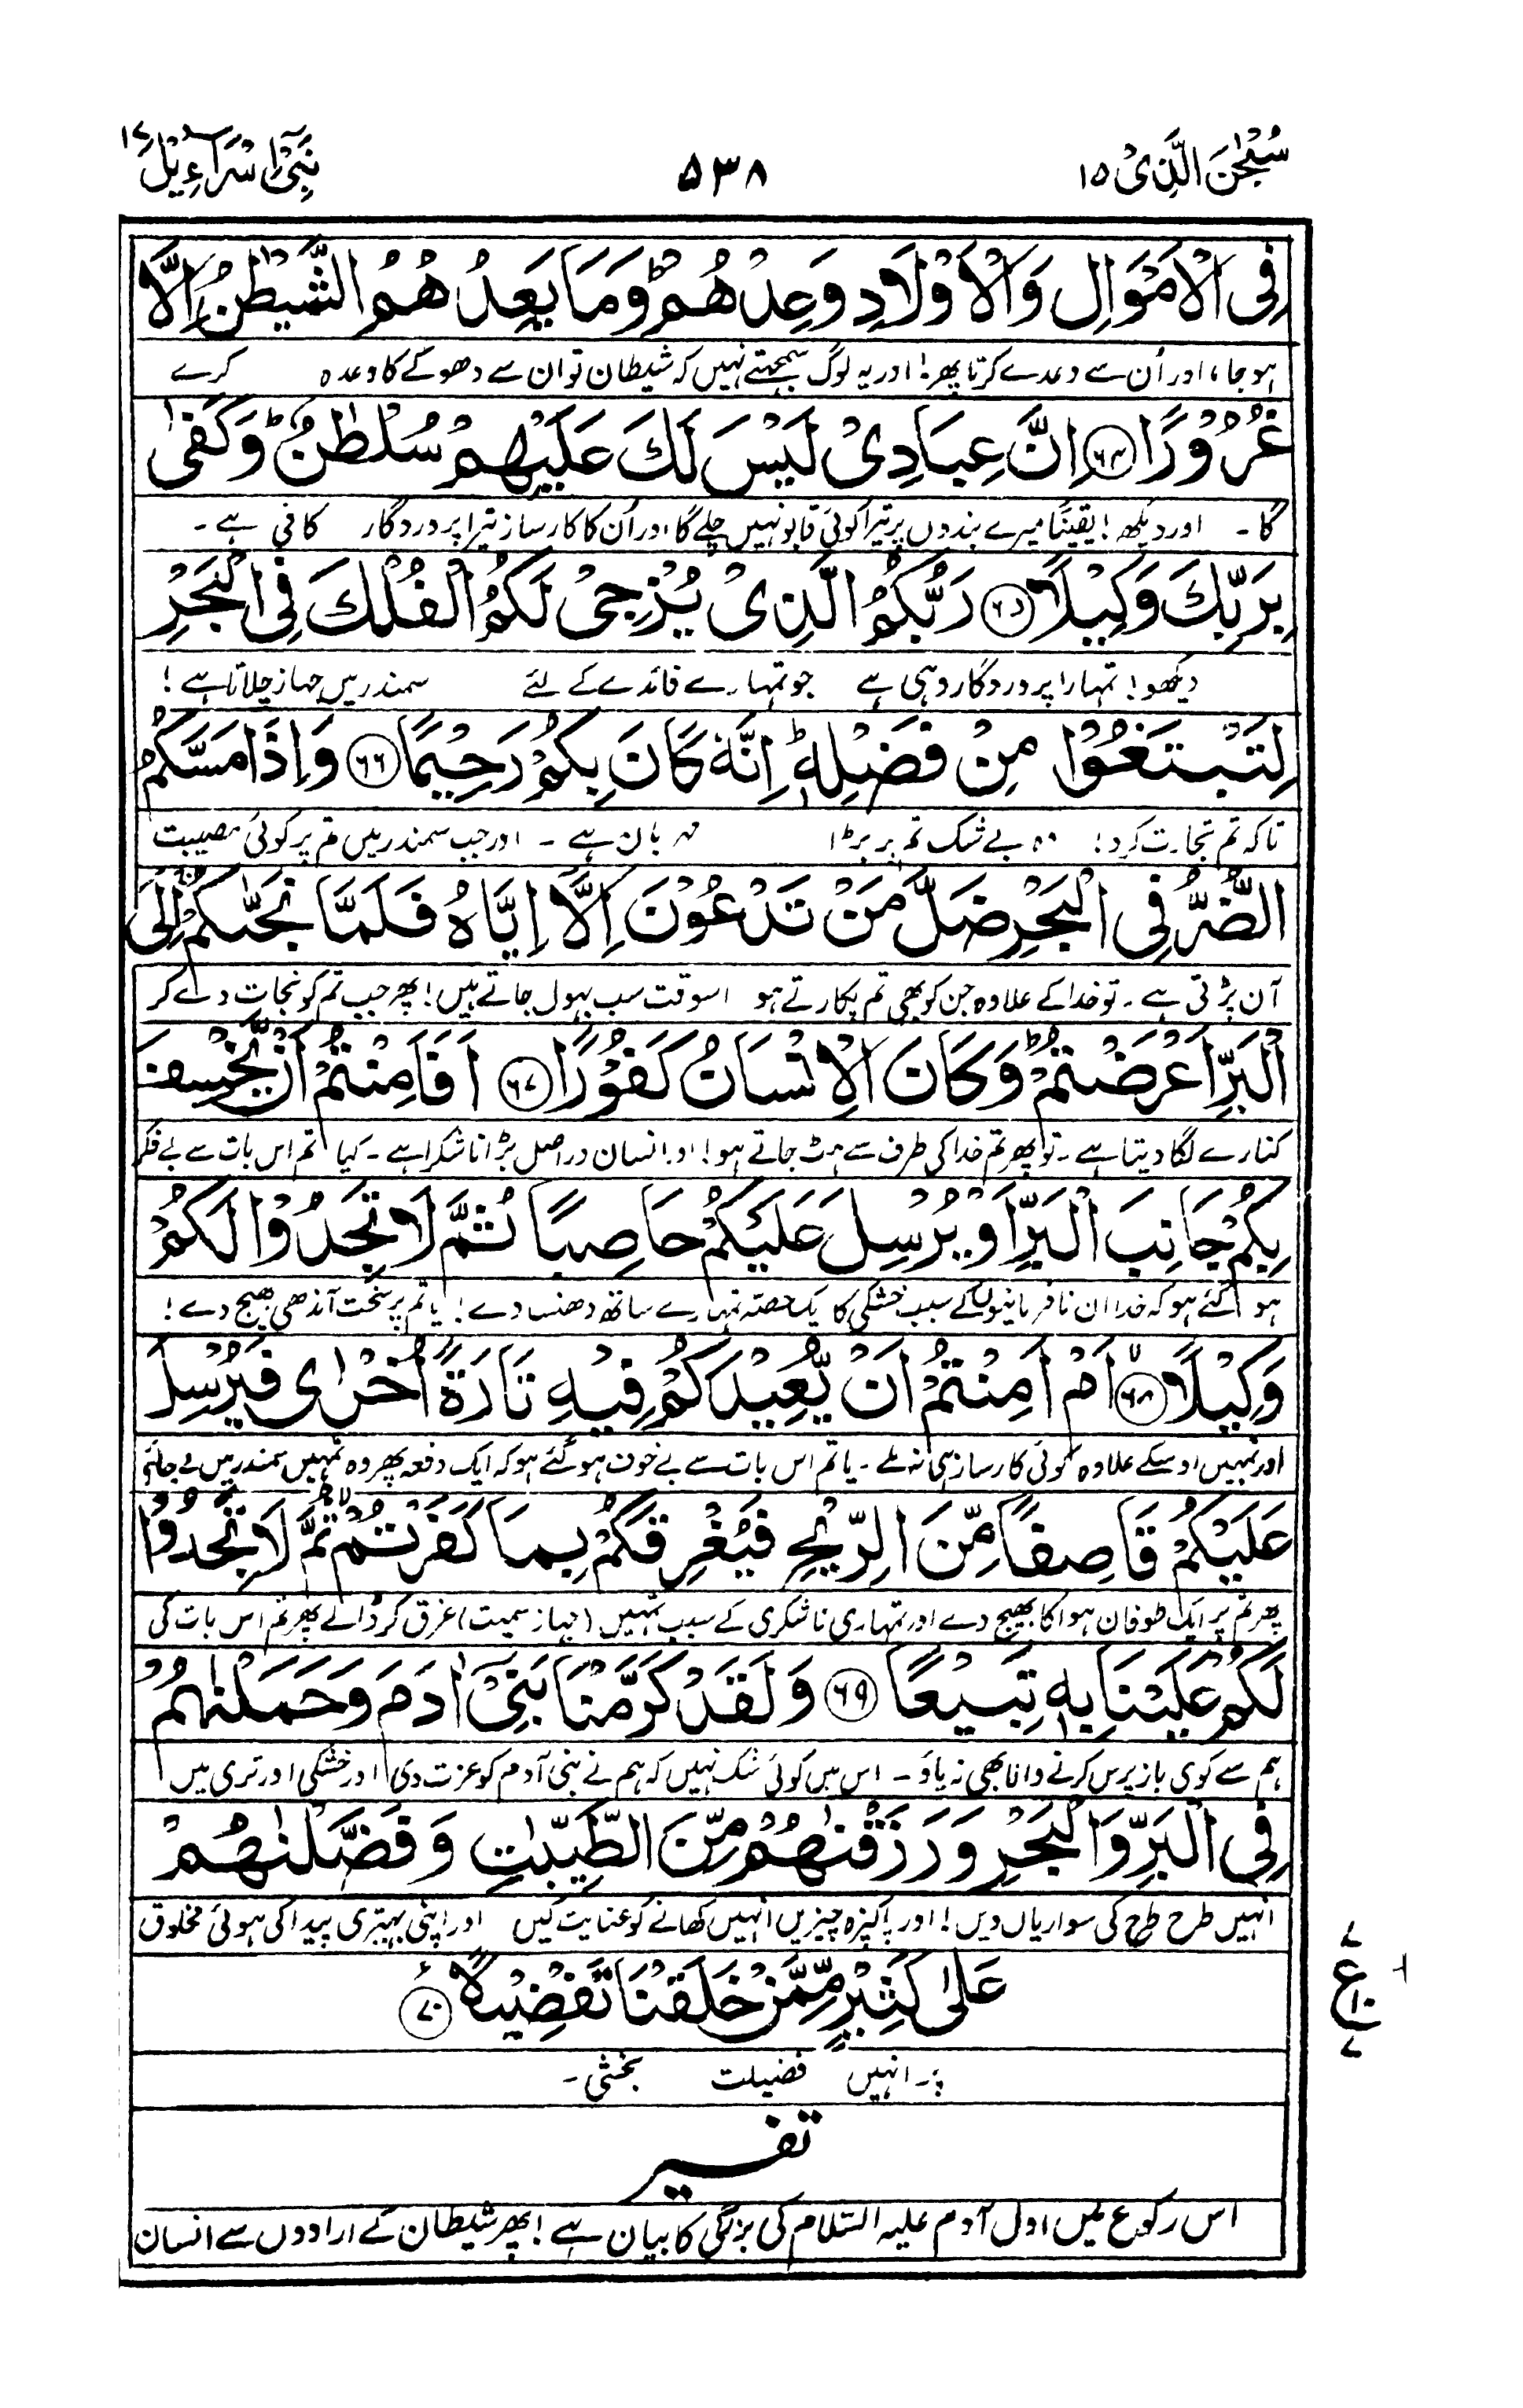 سُبْحٰنَ الَّذِیْ ۱۵
۵۳۸
بَنِیْۤ اِسْرَآءِیْل ۱۷
فِی الْاَمْوَالِ وَالْاَوْلَادِ وَعِدْهُمْ ؕ وَمَا یَعِدُهُمُ الشَّیْطٰنُ اِلَّا
ہو جا، اور اُن سے وعدے کرتا پھر! اور یہ لوگ سمجھتے نہیں کہ شیطان تو ان سے دھوکے کا وعدہ کرے
غُرُوْرًا ۶۴ اِنَّ عِبَادِیْ لَیْسَ لَكَ عَلَیْهِمْ سُلْطٰنٌ ؕ وَكَفٰی
گا۔ اور دیکھ! یقیناً میرے بندوں پر تیرا کوئی قابو نہیں چلے گا اور اُن کا کارساز تیرا پروردگار کافی ہے۔
بِرَبِّكَ وَكِیْلًا ۶۵ رَبُّكُمُ الَّذِیْ یُزْجِیْ لَكُمُ الْفُلْكَ فِی الْبَحْرِ
دیکھو! تمہارا پروردگار وہی ہے جو تمہارے فائدے کے لئے سمندر میں جہاز چلاتا ہے!
لِتَبْتَغُوْا مِنْ فَضْلِهٖ ؕ اِنَّهٗ كَانَ بِكُمْ رَحِیْمًا ۶۶ وَاِذَا مَسَّكُمُ
تاکہ تم تجارت کرو! وہ بے شک تم پر بڑا مہربان ہے۔ اور جب سمندر میں تم پر کوئی مصیبت
الضُّرُّ فِی الْبَحْرِ ضَلَّ مَنْ تَدْعُوْنَ اِلَّاۤ اِیَّاهُ فَلَمَّا نَجّٰىكُمْ اِلَی
آن پڑتی ہے۔ تو خدا کے علاوہ جن کو بھی تم پکارتے ہو اسوقت سب بھول جاتے ہیں! پھر جب تم کو نجات دے کر
الْبَرِّ اَعْرَضْتُمْ ؕ وَكَانَ الْاِنْسَانُ كَفُوْرًا ۶۷ اَفَاَمِنْتُمْ اَنْ یَّخْسِفَ
کنارے لگا دیتا ہے۔ تو پھر تم خدا کی طرف سے ہٹ جاتے ہو! اور انسان دراصل بڑا ناشکرا ہے۔ کیا تم اس بات سے بے فکر
بِكُمْ جَانِبَ الْبَرِّ اَوْ یُرْسِلَ عَلَیْكُمْ حَاصِبًا ثُمَّ لَا تَجِدُوْا لَكُمْ
ہو گئے ہو کہ خدا ان نافرمانیوں کے سبب خشکی کا یک حصتہ تمہارے ساتھ دھنسا دے! یا تم پر سخت آندھی بھیج دے!
وَكِیْلًا ۶۸ اَمْ اَمِنْتُمْ اَنْ یُّعِیْدَكُمْ فِیْهِ تَارَةً اُخْرٰی فَیُرْسِلَ
اور تمہیں اوسکے علاوہ کوئی کارساز ہی نہ ملے۔ یا تم اس بات سے بے خوف ہو گئے ہو کہ ایک دفعہ پھر وہ تمہیں سمندر میں لے جائے
عَلَیْكُمْ قَاصِفًا مِّنَ الرِّیْحِ فَیُغْرِقَكُمْ بِمَا كَفَرْتُمْ ۙ ثُمَّ لَا تَجِدُوْا
پھر تم پر ایک طوفان ہوا کا بھیج دے اور تمہاری ناشکری کے سبب تمہیں (جہاز سمیت) غرق کر ڈالے پھر تم اس بات کی
لَكُمْ عَلَیْنَا بِهٖ تَبِیْعًا ۶۹ وَلَقَدْ كَرَّمْنَا بَنِیْۤ اٰدَمَ وَحَمَلْنٰهُمْ
ہم سے کوی بازپرس کرنے والا بھی نہ پاؤ۔ اس میں کوئی شک نہیں کہ ہم نے بنی آدم کو عزت دی اور خشکی اور تری میں
فِی الْبَرِّ وَالْبَحْرِ وَرَزَقْنٰهُمْ مِّنَ الطَّیِّبٰتِ وَفَضَّلْنٰهُمْ
انہیں طرح طرح کی سواریاں دیں! اور پاکیزہ چیزیں انہیں کھانے کو عنایت کیں اور اپنی بہتیری پیدا کی ہوئی مخلوق
عَلٰی كَثِیْرٍ مِّمَّنْ خَلَقْنَا تَفْضِیْلًا ۷۰
۷
ع
۱۰
۷
پر۔ انہیں فضیلت بخشی۔
تفسیر
اس رکوع میں اول آدم علیہ السّلام کی بزرگی کا بیان ہے! پھر شیطان کے ارادوں سے انسان